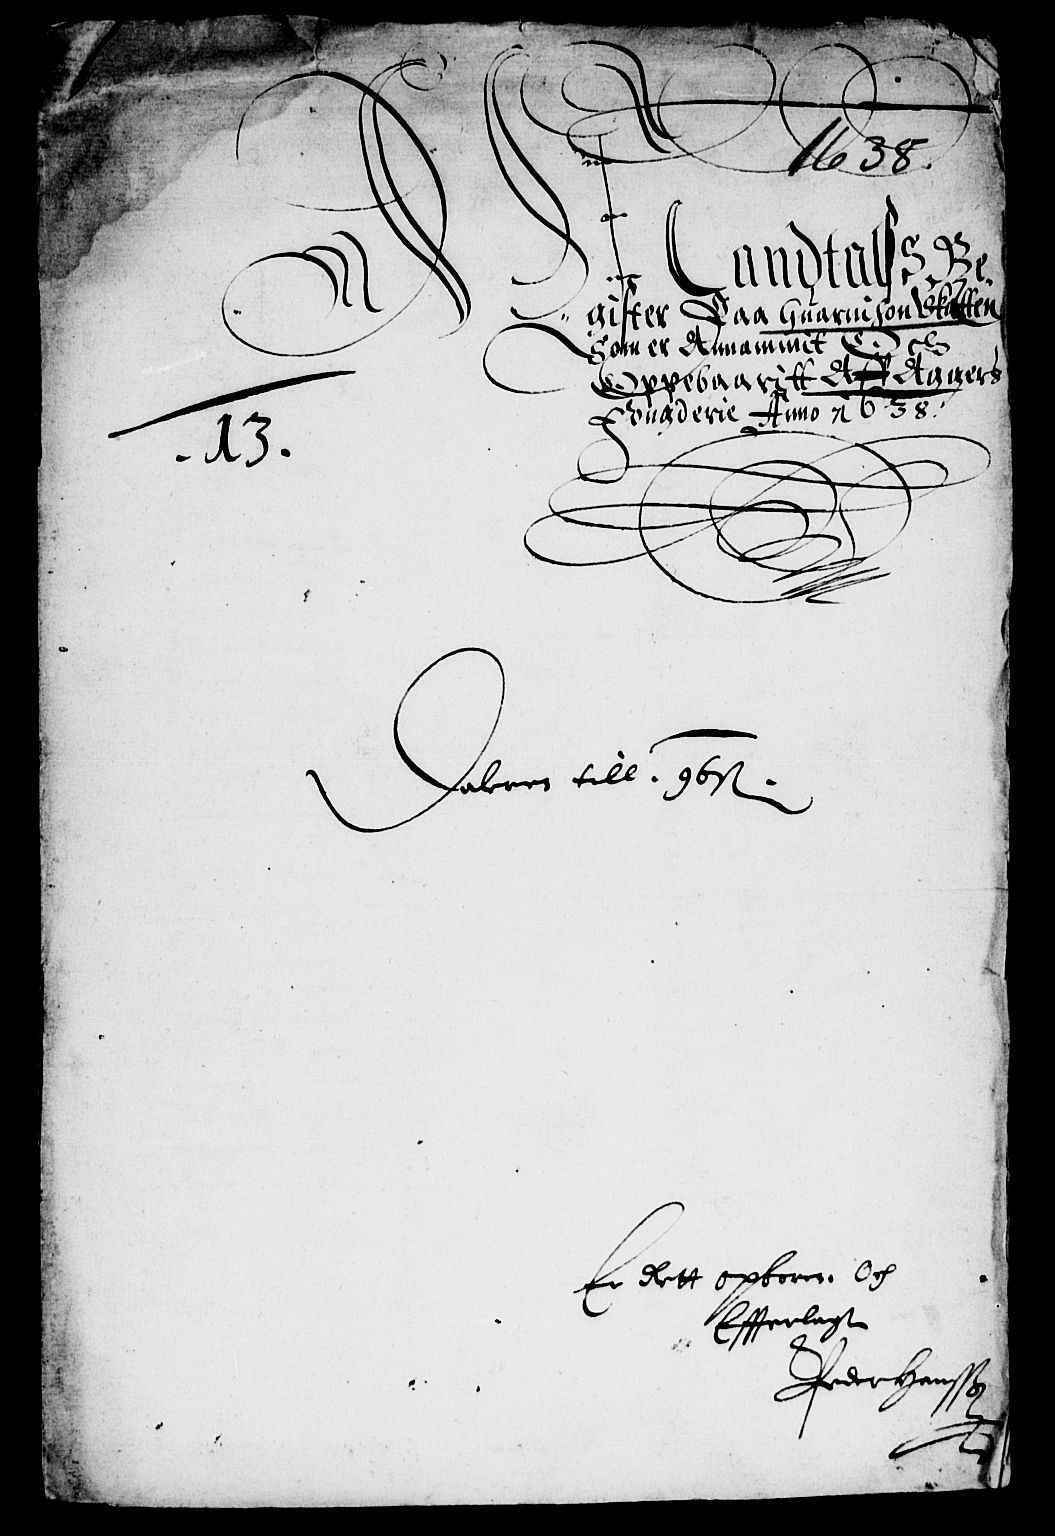 1638.
Landtals Re
gister Paa Guarnison Skatten
Som er Annammit Och
Oppebaaritt Aff Aggers
Fougderie Anno 1638.
. 13 .
till .
Er Rett opboren Och
Efferlagt
Peder Hanssøn